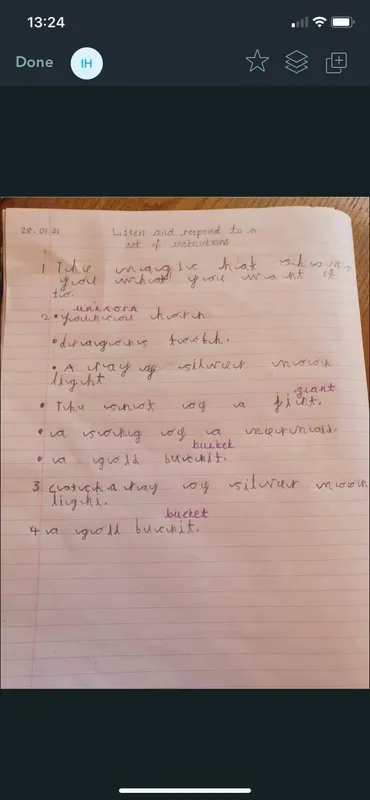 13:24
Done IH
28.01.21 Listen and respond to a
set of instructions
1 The magic hat shows
you what you want it
to.
unicorn
2 • younicou horn
• dragons tooth.
• A ray of silver moon
light
giant
• The snot of a jint.
• a song of a mermaid.
bucket
• a gold buckit.
3 catch a ray of silver moon
light.
bucket
4 a gold buckit.